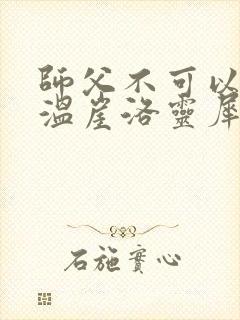 師父不可以
溫崖洛靈犀
石施實心